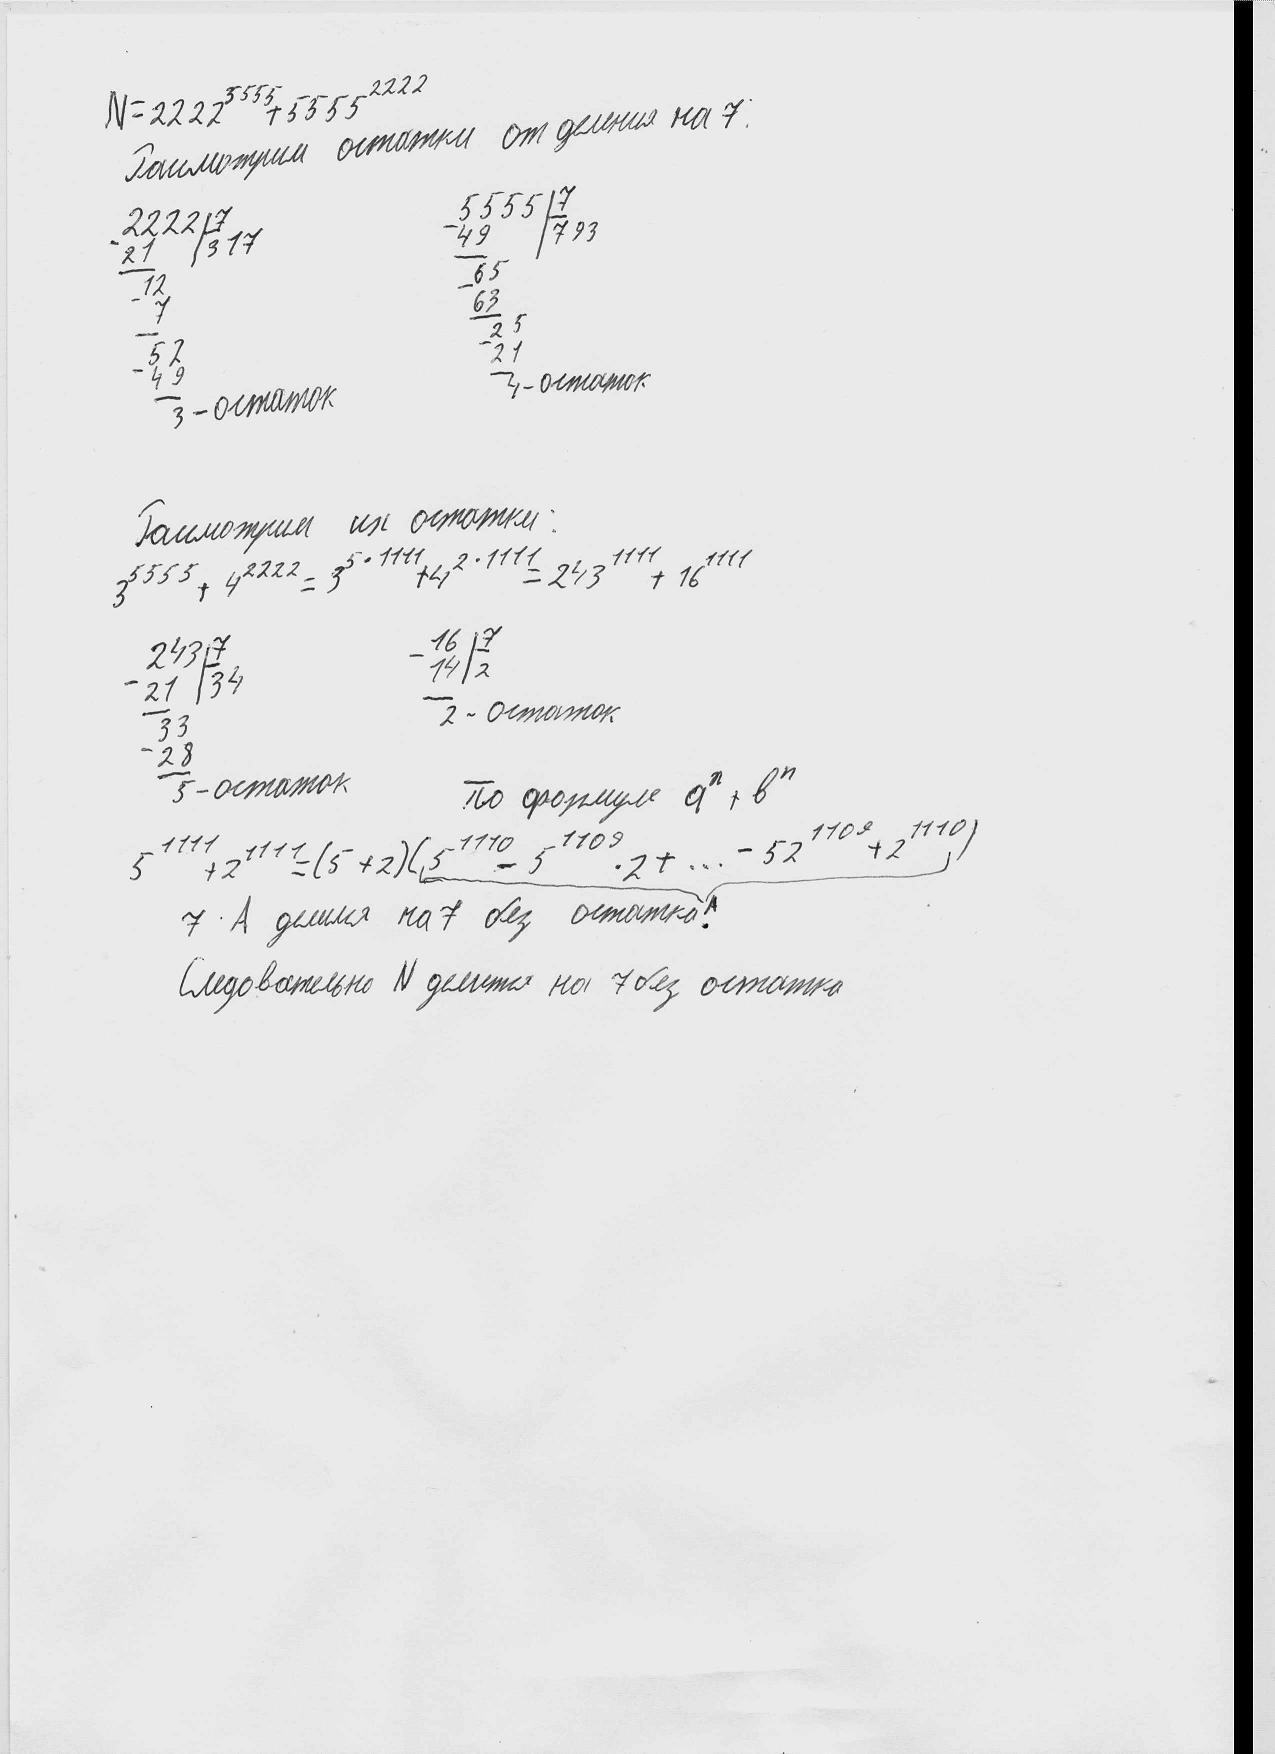 N=2222^5555+5555^2222
Рассмотрим остатки от деления на 7:
2222|7
-21 |317
-12
7
52
-49
3-остаток
5555|7
-49 |793
-65
63
25
-21
4-остаток
Рассмотрим их остатки:
3^5555 + 4^2222 = 3^5·1111 + 4^2·1111 = 243^1111 + 16^1111
243|7
-21 |34
33
-28
5-остаток
-16|7
14|2
2-остаток
По формуле a^n + b^n
5^1111 + 2^1111 = (5+2)(5^1110 - 5^1109 · 2 + ... - 52^1109 + 2^1110)
A
7 · A делится на 7 без остатка!
Следовательно N делится на 7 без остатка